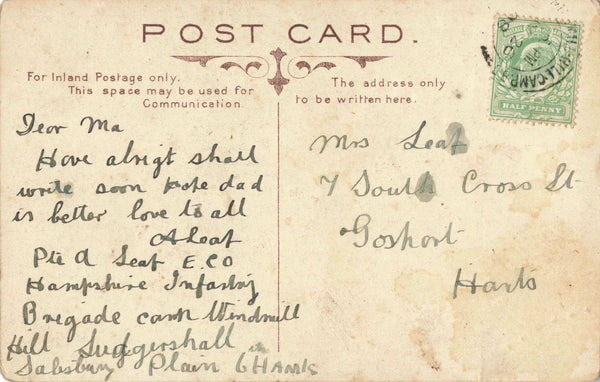 POST CARD.
For Inland Postage only.
This space may be used for
Communication.
The address only
to be written here.
HALF PENNY
Dear Ma
Have alrigt shall
write soon hope dad
is better love to all
A Leaf
Pte A Leaf E. CO
Hampshire Infantry
Brigade camp Windmill
Hill Ludgershall
Salesbury Plain Hants
Mrs Leaf
7 South Cross St
Gosport
Hants